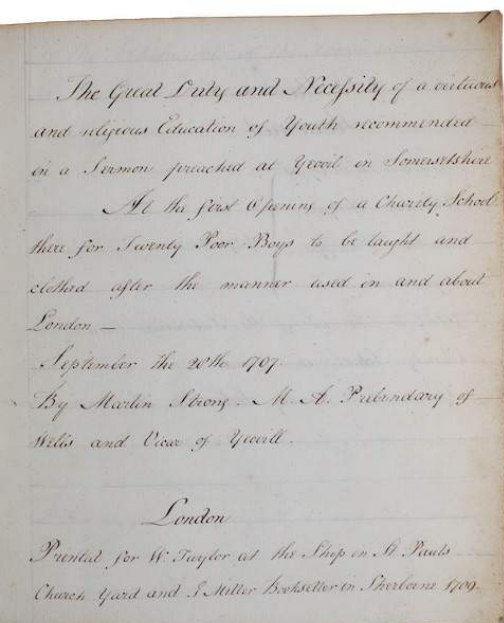 1
The Great Duty and Necessity of a virtuous
and religious Education of Youth recommended
in a Sermon preached at Yeovil in Somersetshire
At the first Opening of a Charity School
there for Twenty Poor Boys to be taught and
clothed after the manner used in and about
London –
September the 20th 1707.
By Martin Strong. M. A. Prebendary of
Wells and Vicar of Yeovill.
London
Printed for W. Taylor at the Ship in St Pauls
Church Yard and J Miller Bookseller in Sherborne 1709.